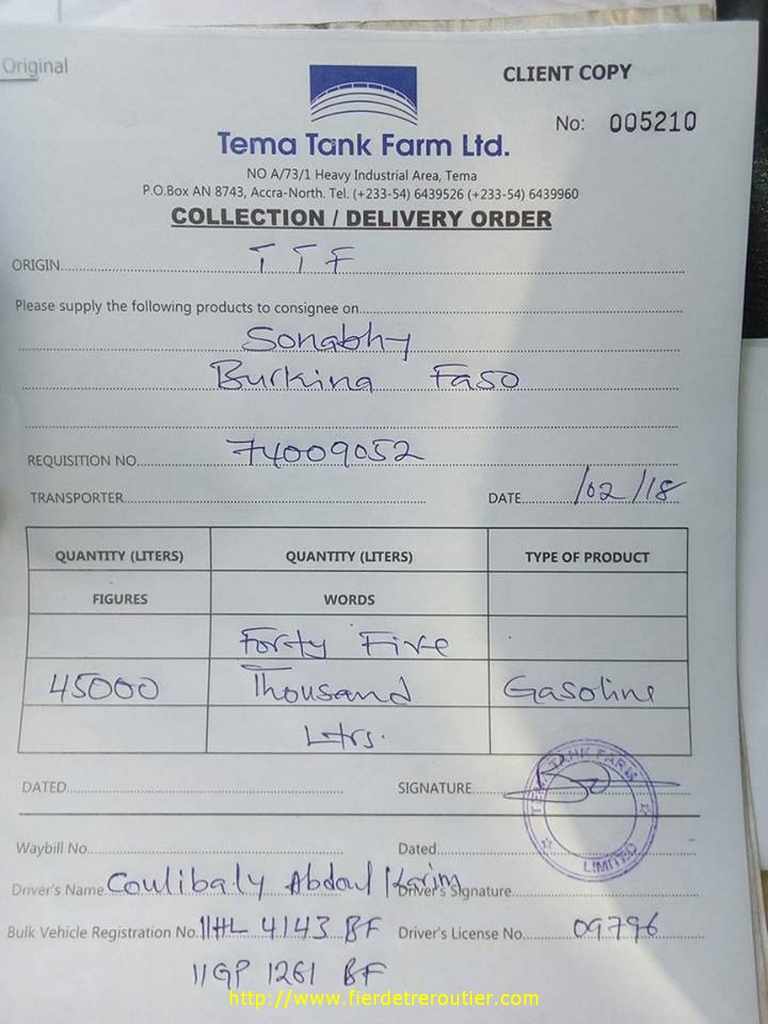 Original
CLIENT COPY
No: 005210
Tema Tank Farm Ltd.
NO A/73/1 Heavy Industrial Area, Tema
P.O.Box AN 8743, Accra-North. Tel. (+233-54) 6439526 (+233-54) 6439960
COLLECTION / DELIVERY ORDER
ORIGIN TTF
Please supply the following products to consignee on
Sonabhy
Burkina Faso
REQUISITION NO. 74009052
TRANSPORTER DATE /02/18
QUANTITY (LITERS) QUANTITY (LITERS) TYPE OF PRODUCT
FIGURES WORDS
Forty Five
45000 Thousand Gasoline
Ltrs.
DATED SIGNATURE
TEMA TANK FARM LIMITED
Waybill No. Dated
Driver's Name Coulibaly Abdoul Karim Driver's Signature
Bulk Vehicle Registration No. 11HL 4143 BF Driver's License No. 09796
11GP 1261 BF
http://www.fierdetreroutier.com